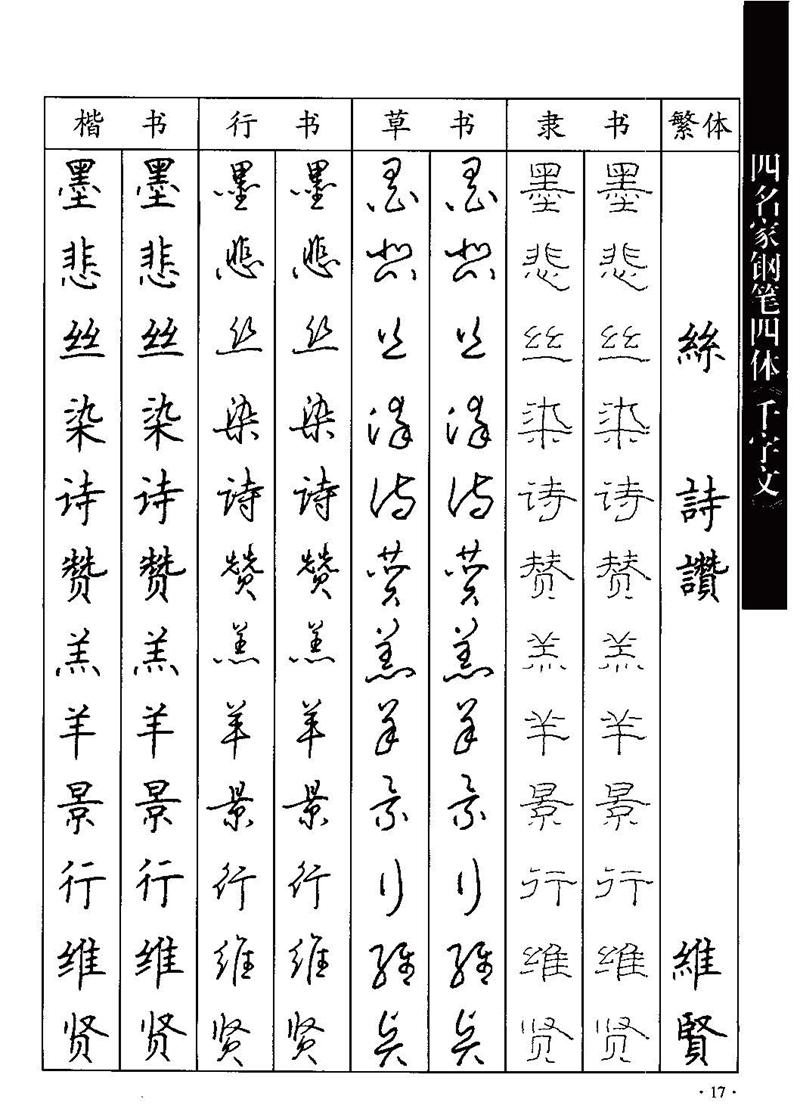 楷书 行书 草书 隶书 繁体
墨 墨 墨 墨 墨 墨 墨 墨
悲 悲 悲 悲 悲 悲 悲 悲
丝 丝 丝 丝 丝 丝 丝 丝 絲
染 染 染 染 染 染 染 染
诗 诗 诗 诗 诗 诗 诗 诗 詩
赞 赞 赞 赞 赞 赞 赞 赞 讚
羔 羔 羔 羔 羔 羔 羔 羔
羊 羊 羊 羊 羊 羊 羊 羊
景 景 景 景 景 景 景 景
行 行 行 行 行 行 行 行
维 维 维 维 维 维 维 维 維
贤 贤 贤 贤 贤 贤 贤 贤 賢
四名家钢笔四体《千字文》
·17·